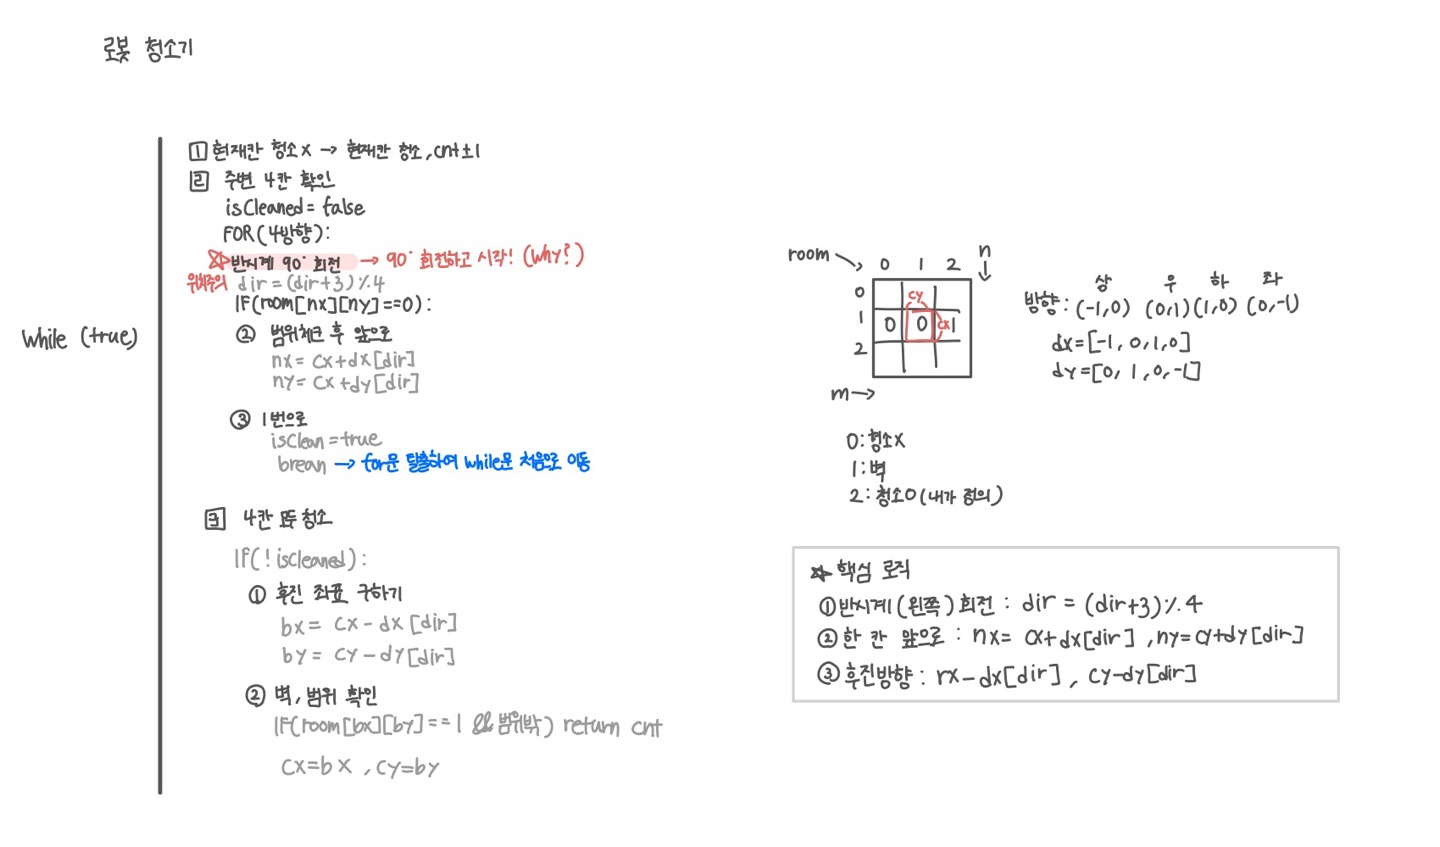 로봇 청소기
While (true)
1 현재칸 청소x → 현재칸 청소, cnt±1
2 주변 4칸 확인
isCleaned = false
FOR(4방향):
☆반시계 90° 회전 → 90° 회전하고 시작! (Why?)
위치주의 dir = (dir+3)%4
IF(room[nx][ny]==0):
② 범위체크 후 앞으로
nx = cx+dx[dir]
ny= cx+dy[dir]
③ 1번으로
isClean=true
brean → for문 탈출하여 while문 처음으로 이동
3 4칸 모두 청소
IF(!isCleaned):
① 후진 좌표 구하기
bx = cx - dx[dir]
by = cy - dy[dir]
② 벽, 범위 확인
IF(room[bx][by]==1 && 범위밖) return cnt
cx=bx , cy=by
room → n ↓
0 1 2
0
cy
1 0 0 cx 1
2
m→
상 우 하 좌
방향: (-1,0) (0,1) (1,0) (0,-1)
dx=[-1, 0, 1, 0]
dy=[0, 1, 0, -1]
0: 청소x
1: 벽
2: 청소O (내가 정의)
☆ 핵심 로직
①반시계(왼쪽)회전 : dir = (dir+3)%4
②한 칸 앞으로 : nx= cx+dx[dir] , ny=cy+dy[dir]
③후진방향 : rx-dx[dir] , cy-dy[dir]